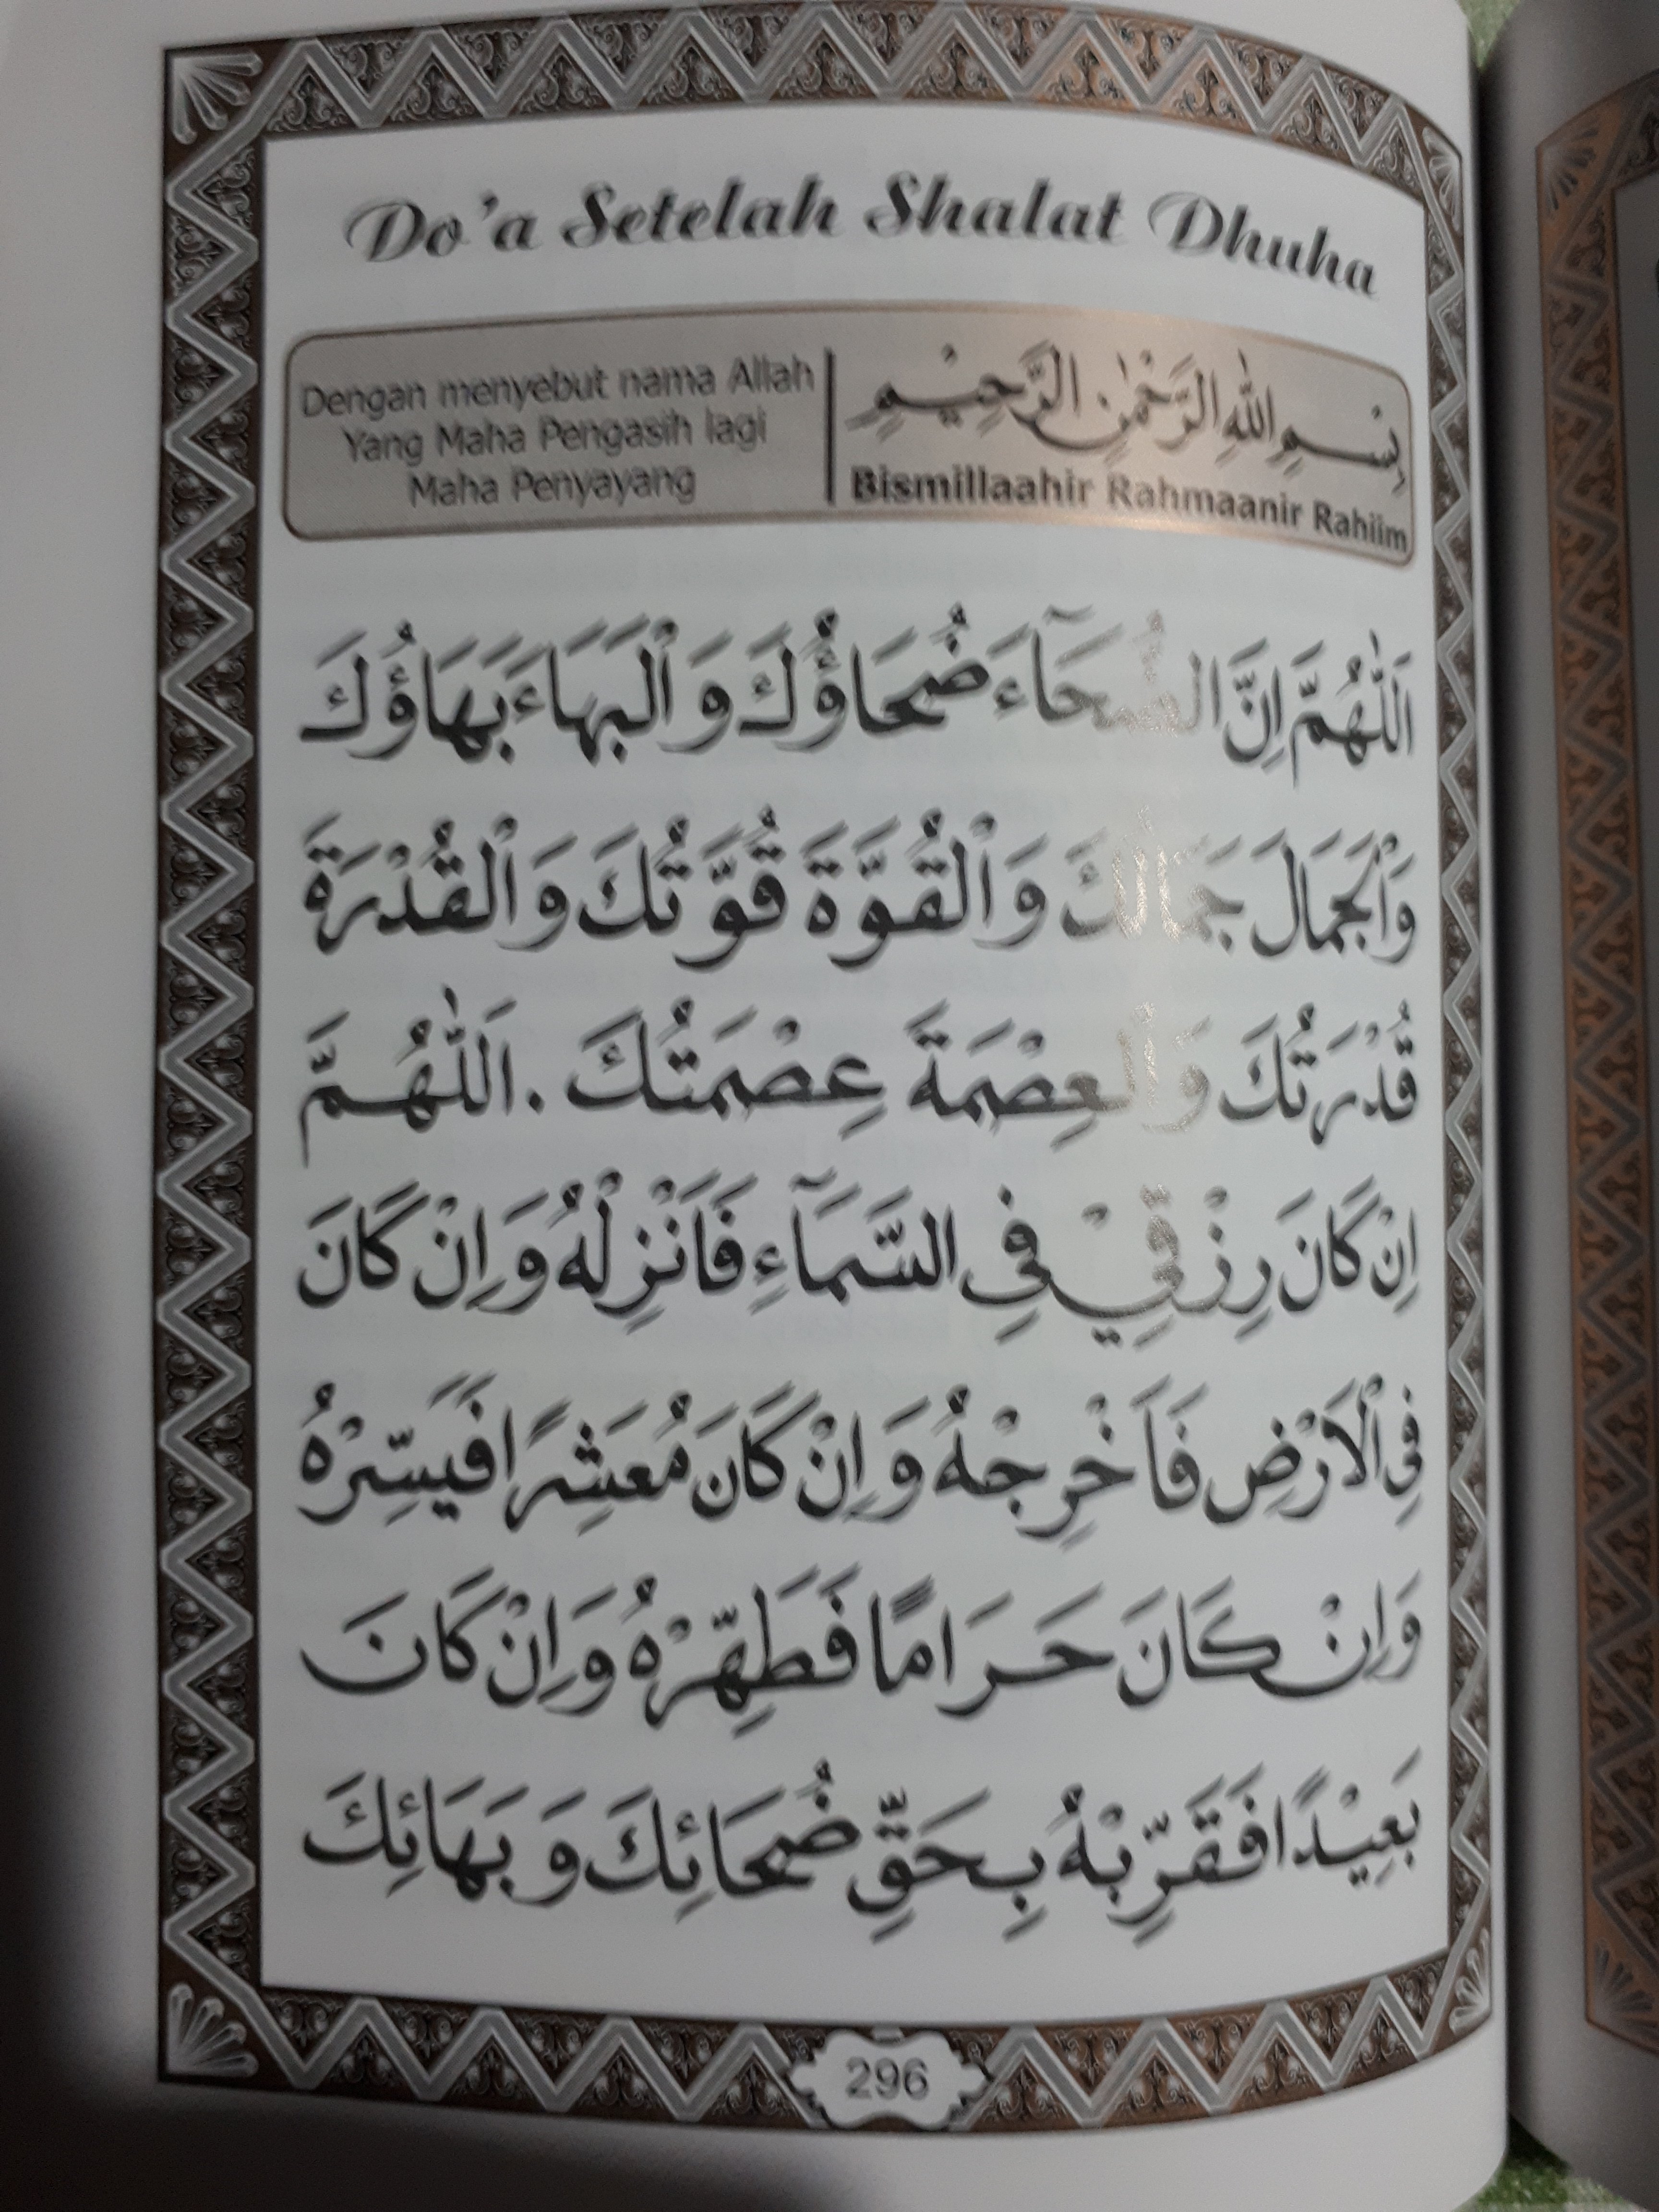 Do'a Setelah Shalat Dhuha
Dengan menyebut nama Allah
Yang Maha Pengasih lagi
Maha Penyayang
بِسْمِ اللهِ الرَّحْمٰنِ الرَّحِيْمِ
Bismillaahir Rahmaanir Rahiim
اَللّٰهُمَّ اِنَّ الضُّحَآءَ ضُحَاؤُكَ وَالْبَهَاءَ بَهَاؤُكَ
وَالْجَمَالَ جَمَالُكَ وَالْقُوَّةَ قُوَّتُكَ وَالْقُدْرَةَ
قُدْرَتُكَ وَالْعِصْمَةَ عِصْمَتُكَ . اَللّٰهُمَّ
اِنْ كَانَ رِزْقِيْ فِى السَّمَآءِ فَاَنْزِلْهُ وَاِنْ كَانَ
فِى الْاَرْضِ فَاَخْرِجْهُ وَاِنْ كَانَ مُعَشِرًا فَيَسِّرْهُ
وَاِنْ كَانَ حَرَامًا فَطَهِّرْهُ وَاِنْ كَانَ
بَعِيْدًا فَقَرِّبْهُ بِحَقِّ ضُحَائِكَ وَبَهَائِكَ
296